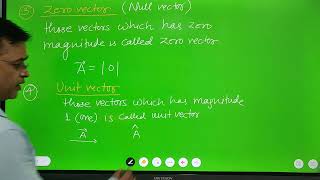 ③ Zero vector (Null vector)
those vectors which has zero
magnitude is called zero vector
A⃗ = |0|
④ Unit vector
those vectors which has magnitude
1 (one) is called unit vector
A⃗ Â